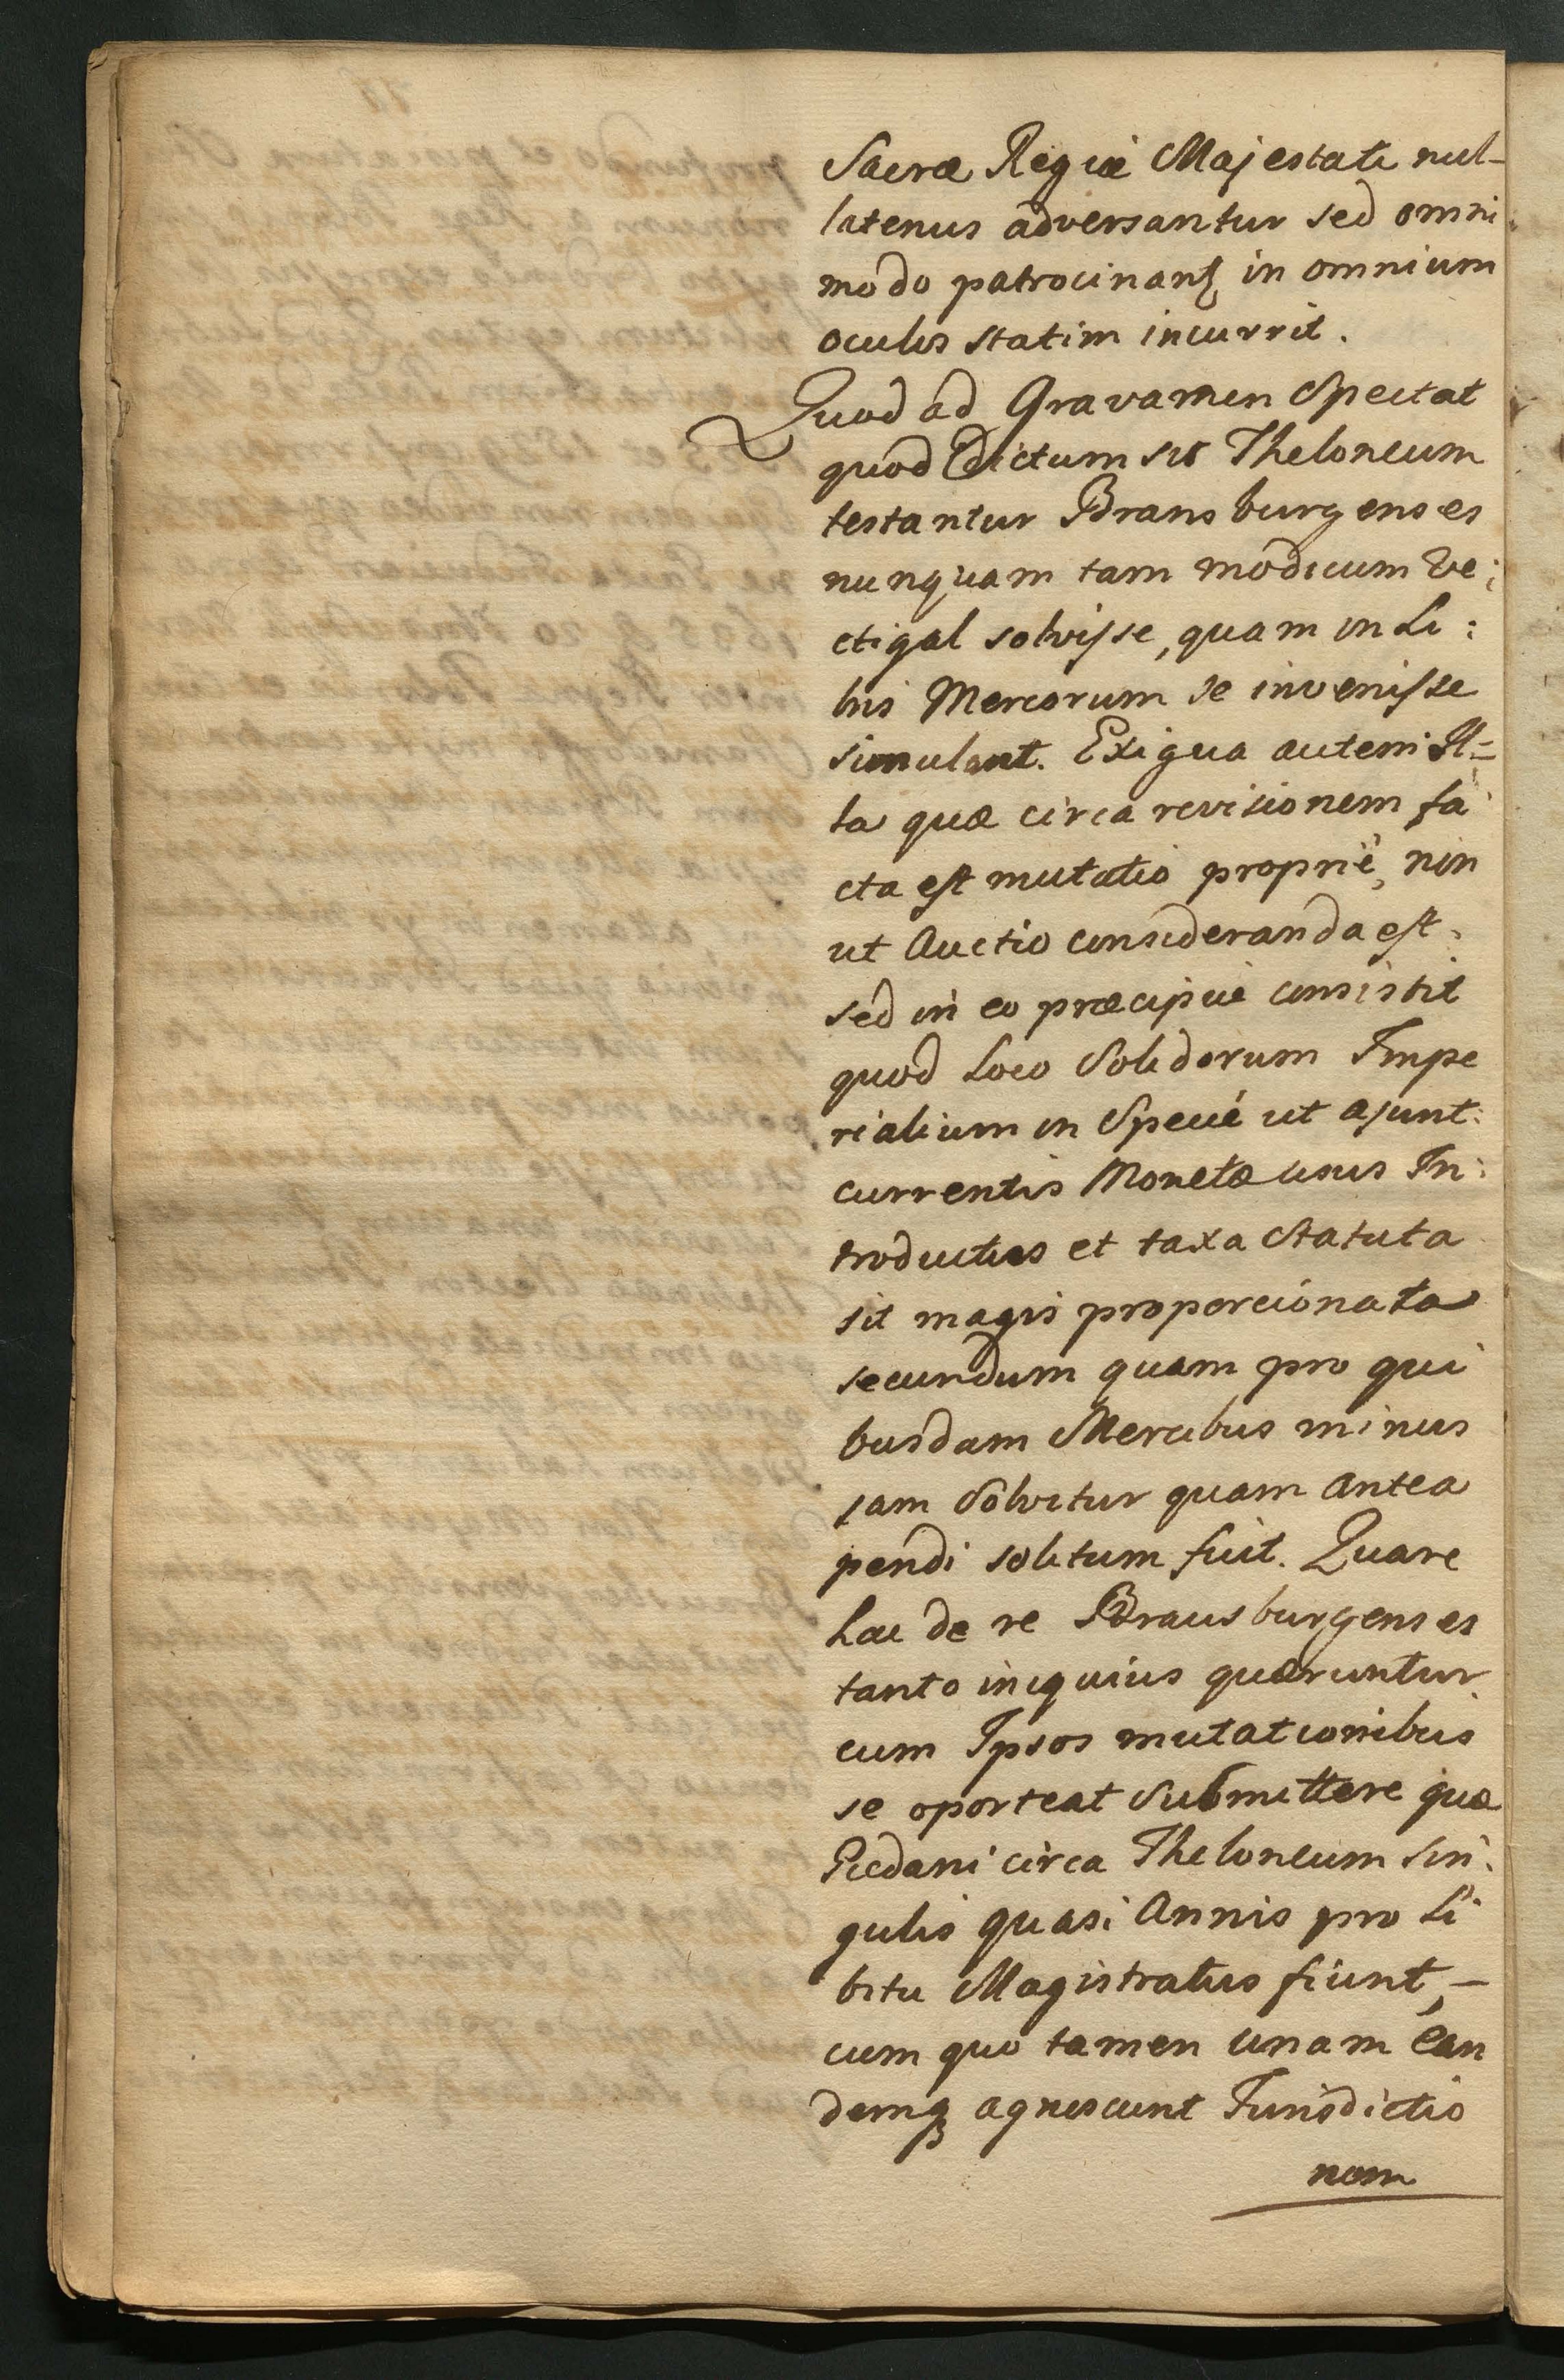 Sacræ Regiæ Majestati nul-
latenus adversantur sed omni
modo patrocinantꝫ in omnium
oculos statim incurrit.
Quod ad Gravamen Spectat
quod dictum sit Theloneum
testantur Bransburgenses
nunquam tam modicum Ve:
ctigal solvisse, quam in Li:
bris Mercorum se invenisse
simulant. Exigua autem Il=
la quæ circa revisionem fa
cta est mutatio propriè, non
ut Auctio consideranda est.
sed in eo præcipuè consistit
quod Loco Solidorum Impe
rialium in Specie ut ajunt.
currentis Monetæ usus In:
troductus et taxa Statuta
sit magis proporcionata
secundum quam pro qui
busdam Mercibus minus
jam Solvitur quam antea
pendi solitum fuit. Quare
hac de re Brausburgenses
tanto iniquius quæruntur
cum Ipsos mutationibus
se oporteat Submittere quæ
Gedani circa Theloneum sin:
gulis quasi Annis pro Li
bitu Magistratus fiunt, –
cum quo tamen unam ean
demqꝫ agnoscunt Jurisdictio
nem